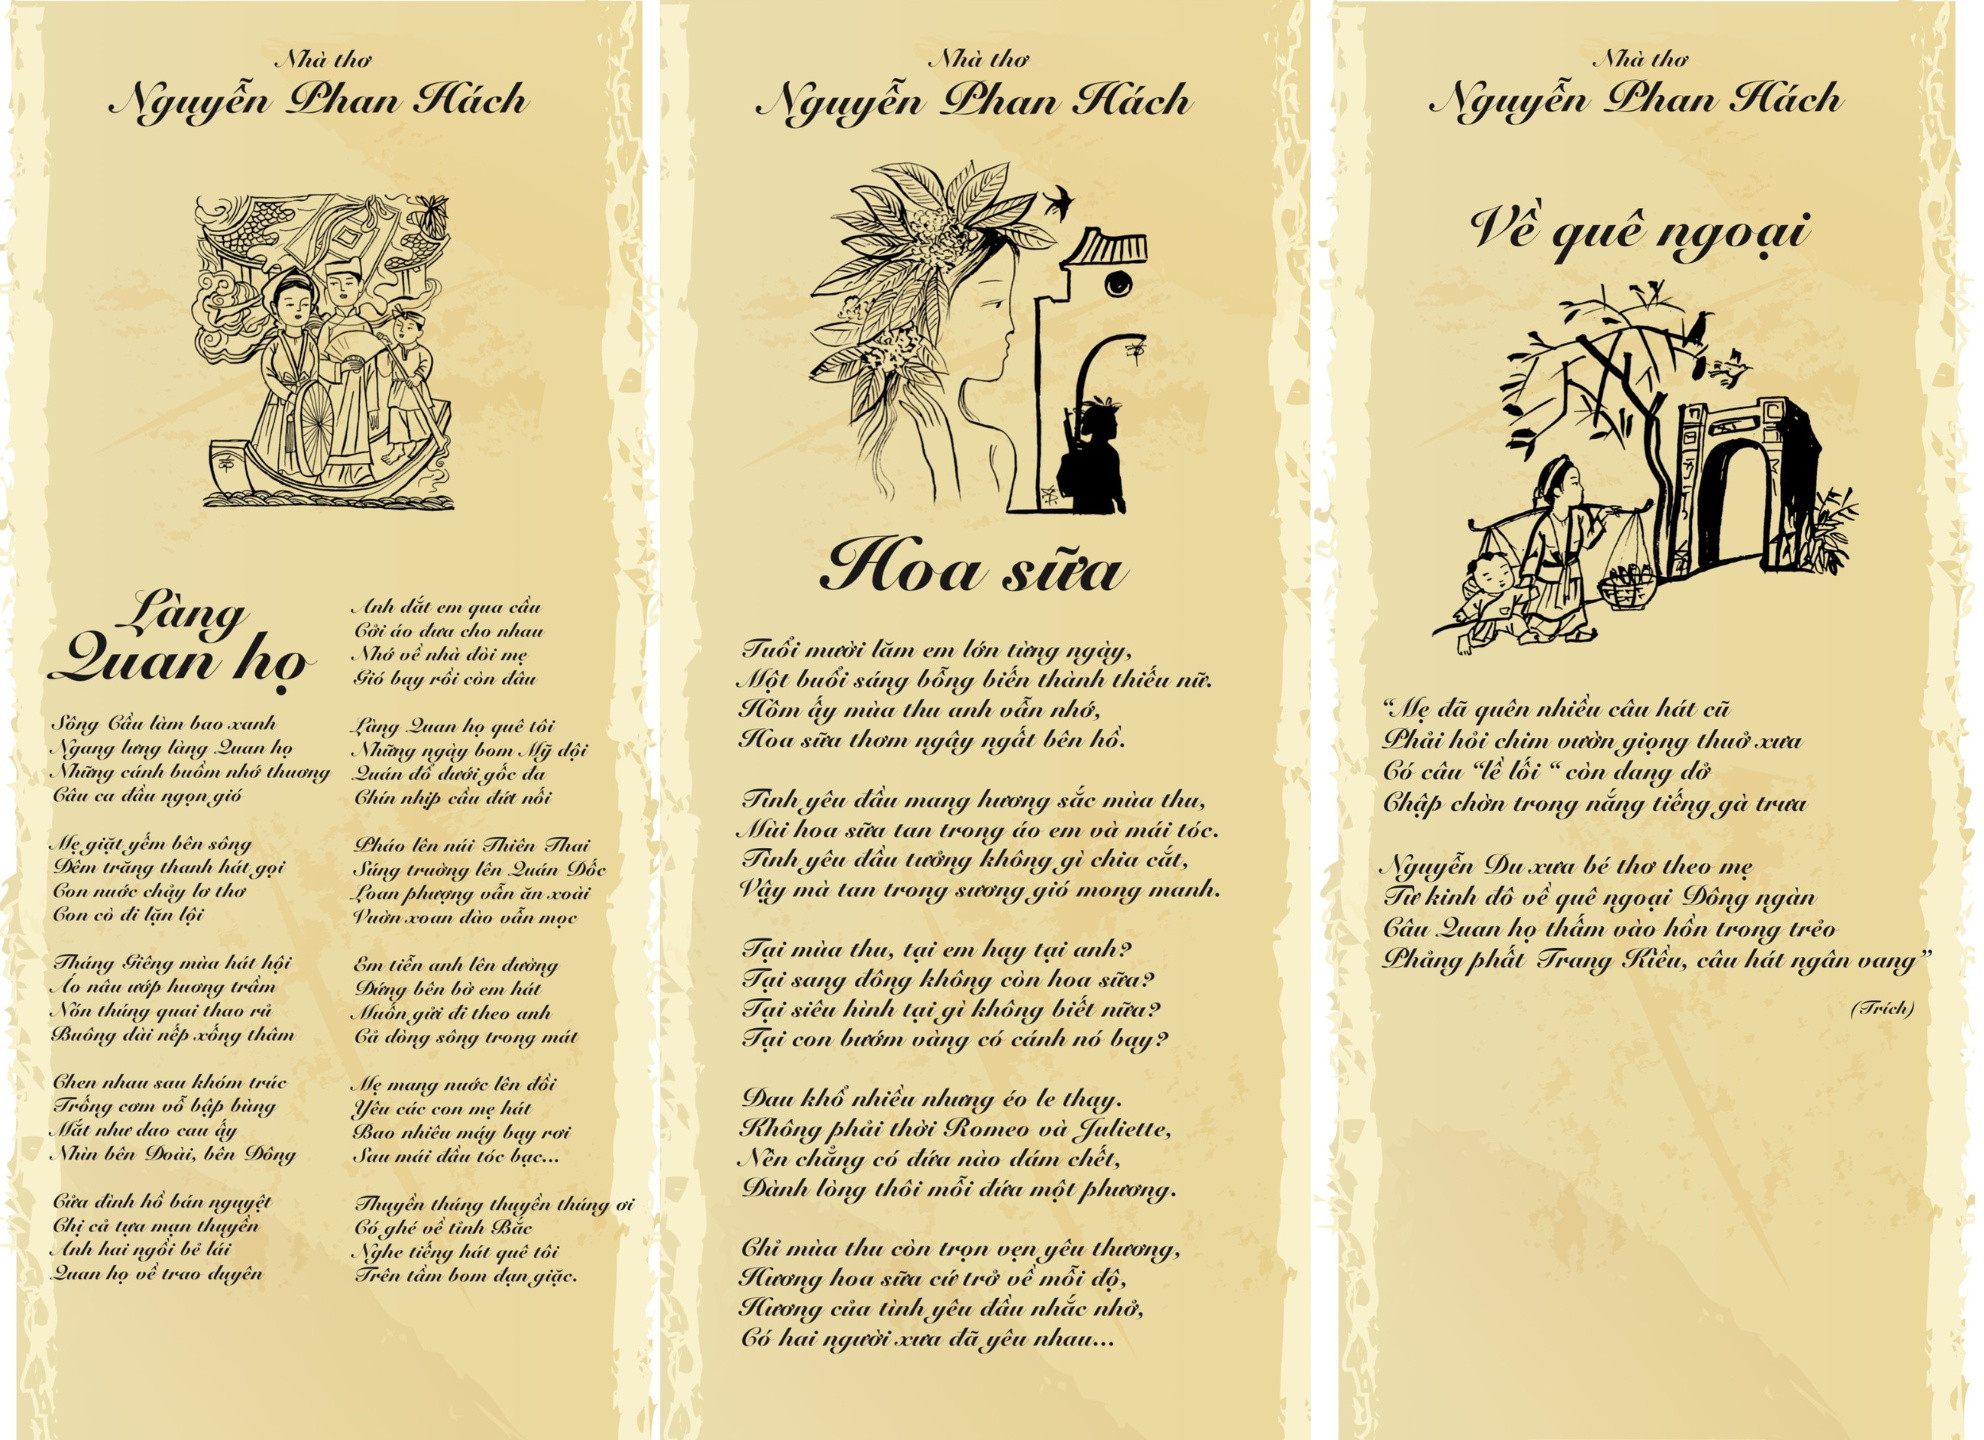 Nhà thơ
Nguyễn Phan Hách
Làng
Quan họ
Sông Cầu làm bao xanh
Ngang lưng làng Quan họ
Những cánh buồm nhớ thuơng
Câu ca đầu ngọn gió
Mẹ giặt yếm bên sông
Đêm trăng thanh hát gọi
Con nuớc chảy lơ thơ
Con cò đi lặn lội
Tháng Giêng mùa hát hội
Áo nâu uớp huơng trầm
Nón thúng quai thao rủ
Buông dài nếp xống thâm
Chen nhau sau khóm trúc
Trống cơm vỗ bập bùng
Mắt như dao cau ấy
Nhìn bên Đoài, bên Đông
Cửa đình hồ bán nguyệt
Chị cả tựa mạn thuyền
Anh hai ngồi bẻ lái
Quan họ về trao duyên
Anh dắt em qua cầu
Cởi áo đưa cho nhau
Nhớ về nhà dòi mẹ
Gió bay rồi còn đâu
Làng Quan họ quê tôi
Những ngày bom Mỹ dội
Quán đổ dưới gốc đa
Chín nhịp cầu đứt nối
Pháo lên núi Thiên Thai
Súng truờng lên Quán Dốc
Loan phượng vẫn ăn xoài
Vuờn xoan đào vẫn mọc
Em tiễn anh lên đường
Đứng bên bờ em hát
Muốn gửi đi theo anh
Cả dòng sông trong mát
Mẹ mang nuớc lên đồi
Yêu các con mẹ hát
Bao nhiêu máy bay rơi
Sau mái đầu tóc bạc...
Thuyền thúng thuyền thúng ơi
Có ghé về tỉnh Bắc
Nghe tiếng hát quê tôi
Trên tầm bom đạn giặc.
Nhà thơ
Nguyễn Phan Hách
Hoa sữa
Tuổi mười lăm em lớn từng ngày,
Một buổi sáng bỗng biến thành thiếu nữ.
Hôm ấy mùa thu anh vẫn nhớ,
Hoa sữa thơm ngây ngất bên hồ.
Tình yêu đầu mang hương sắc mùa thu,
Mùi hoa sữa tan trong áo em và mái tóc.
Tình yêu đầu tưởng không gì chia cắt,
Vậy mà tan trong sương gió mong manh.
Tại mùa thu, tại em hay tại anh?
Tại sang đông không còn hoa sữa?
Tại siêu hình tại gì không biết nữa?
Tại con bướm vàng có cánh nó bay?
Đau khổ nhiều nhưng éo le thay.
Không phải thời Romeo và Juliette,
Nên chẳng có đứa nào dám chết,
Đành lòng thôi mỗi đứa một phương.
Chỉ mùa thu còn trọn vẹn yêu thương,
Hương hoa sữa cứ trở về mỗi độ,
Hương của tình yêu đầu nhắc nhở,
Có hai người xưa đã yêu nhau...
Nhà thơ
Nguyễn Phan Hách
Về quê ngoại
“Mẹ đã quên nhiều câu hát cũ
Phải hỏi chim vườn giọng thuở xưa
Có câu “lề lối “ còn dang dở
Chập chờn trong nắng tiếng gà trưa
Nguyễn Du xưa bé thơ theo mẹ
Từ kinh đô về quê ngoại Đông ngàn
Câu Quan họ thấm vào hồn trong trẻo
Phảng phất Trang Kiều, câu hát ngân vang”
(Trích)